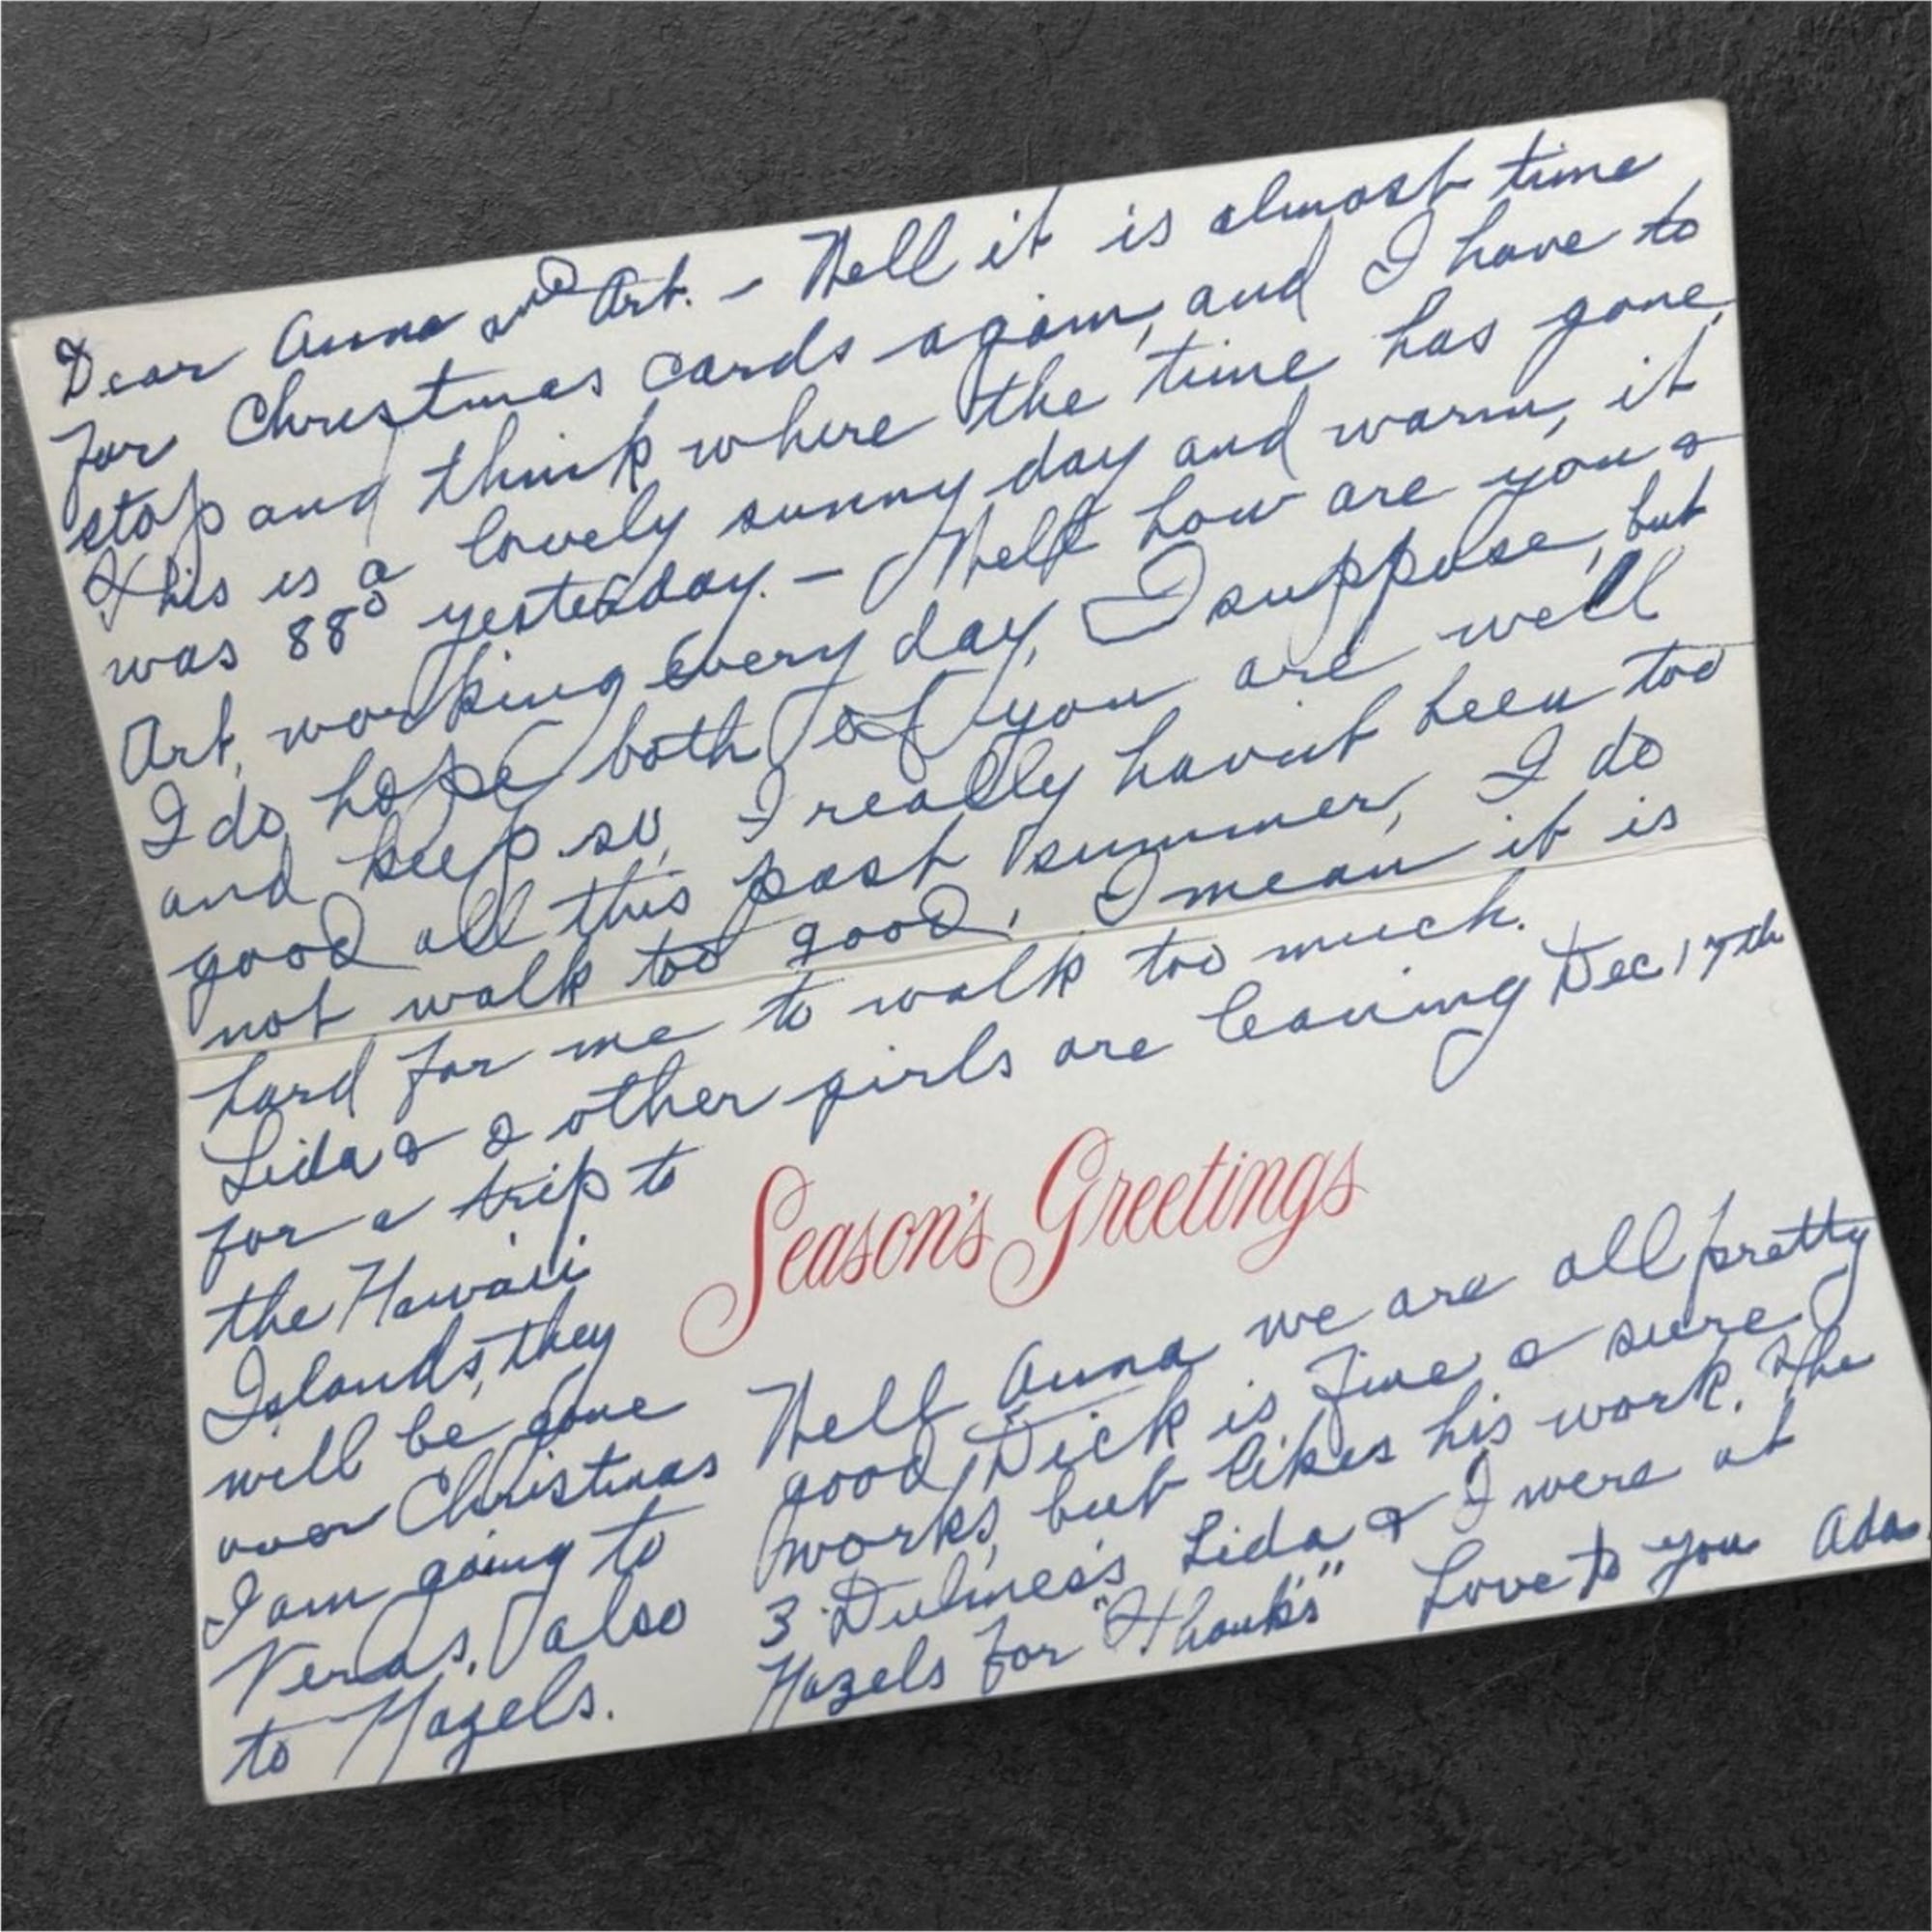 Dear Anna and Art. - Well it is almost time
for Christmas cards again, and I have to
stop and think where the time has gone,
This is a lovely sunny day and warm, it
was 88° yesterday. - Well how are you &
Art, working every day, I suppose, but
I do hope both of you are well
and keep so, I really havent been too
good all this past summer, I do
not walk too good, I mean it is
hard for me to walk too much.
Lida & 2 other girls are leaving Dec 17th
for a trip to
the Hawaii
Islands, they
will be gone
over Christmas
I am going to
Veras, also
to Hazels.
Season's Greetings
Well Anna we are all pretty
good, Dick is fine & sure
works, but likes his work. The
3 Lida & I were at
Hazels for "Thank's" Love to you Ada